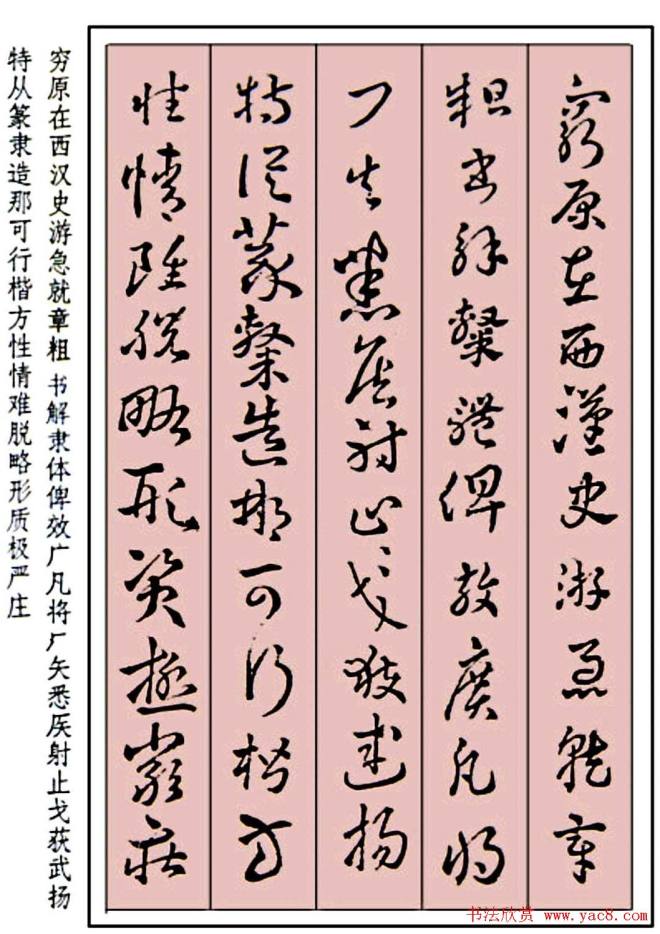 窮原在西漢史游急就章
粗書解隸體俾效廣凡將
厂矢悉矦射止戈獲武揚
特從篆隸造那可行楷方
性情難脫略形質極嚴莊
穷原在西汉史游急就章粗 书解隶体俾效广凡将厂矢悉矦射止戈获武扬
特从篆隶造那可行楷方性情难脱略形质极严庄
书法欣赏
www.yac8.com